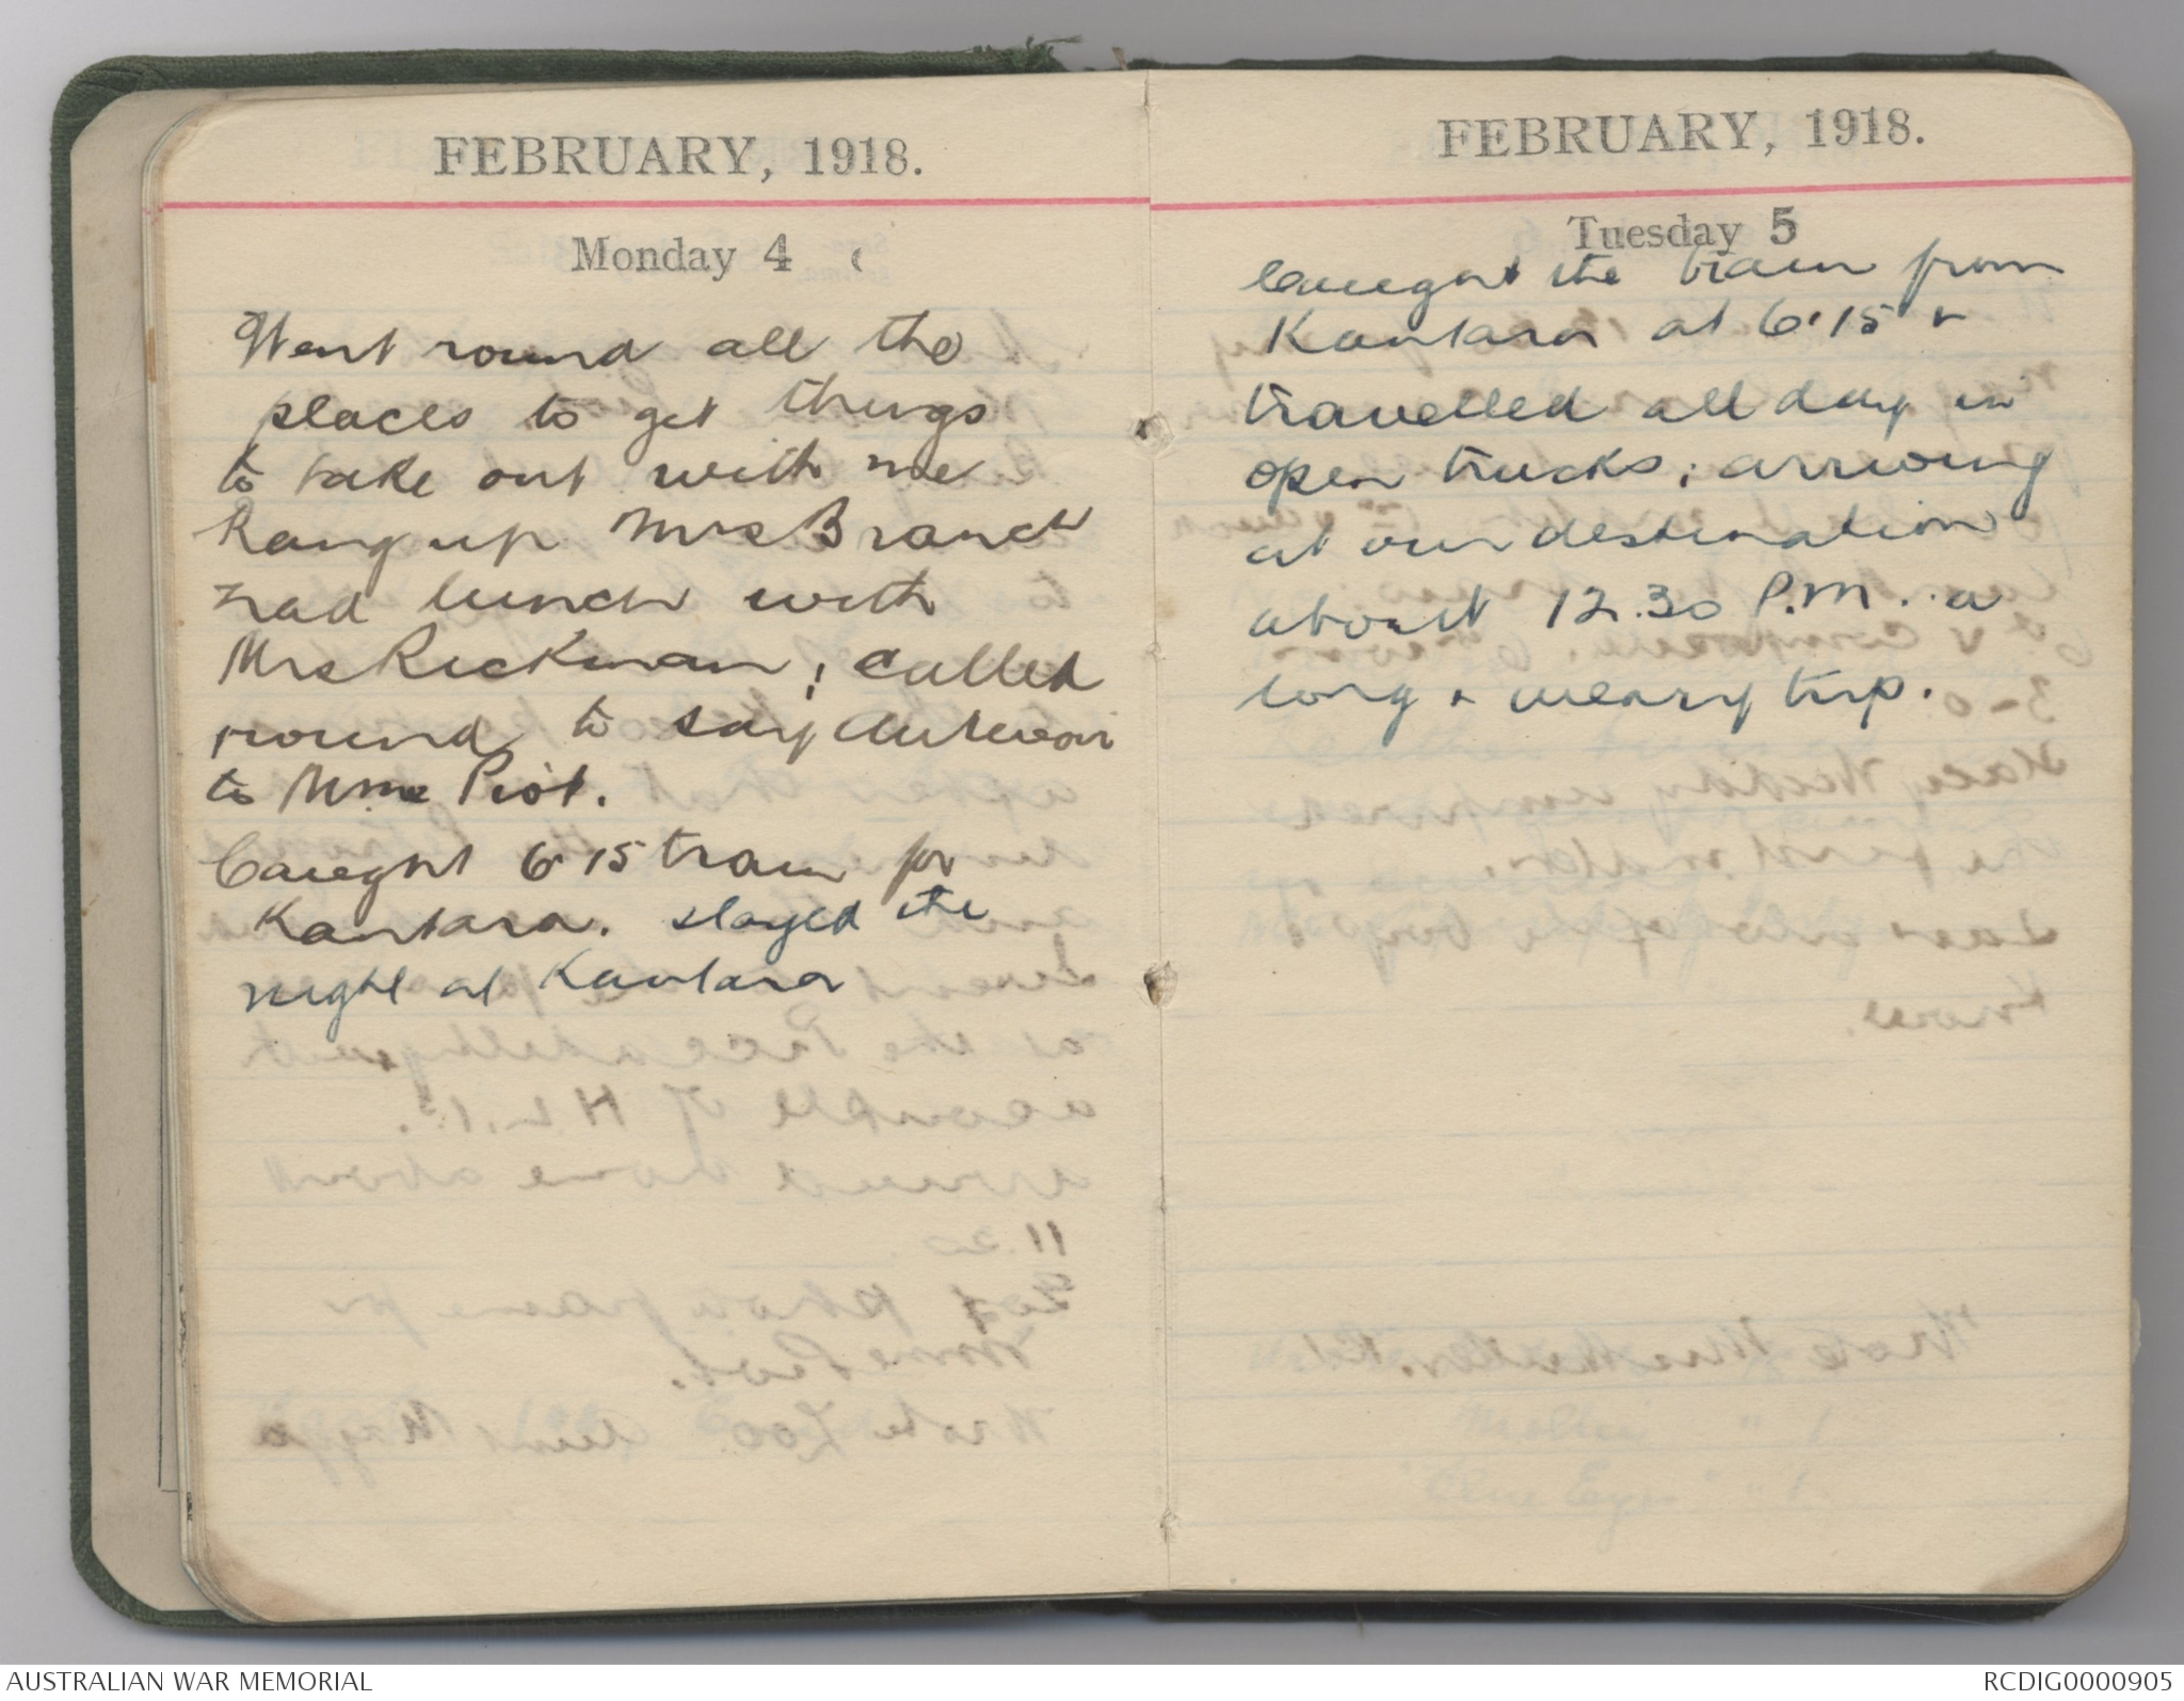 FEBRUARY, 1918.
Monday 4
Went round all the
places to get things
to take out with me
Rang up Mrs Branch
had lunch with
Mrs Rickman; called
round to say Aurevoir
to Mme Piot.
Caught 6.15 train for
Kantara. stayed the
night at Kantara
FEBRUARY, 1918.
Tuesday 5
Caught the train from
Kantara at 6.15 &
travelled all day in
open trucks; arriving
at our destination
about 12.30 P.M.. a
long & weary trip.
AUSTRALIAN WAR MEMORIAL
RCDIG0000905